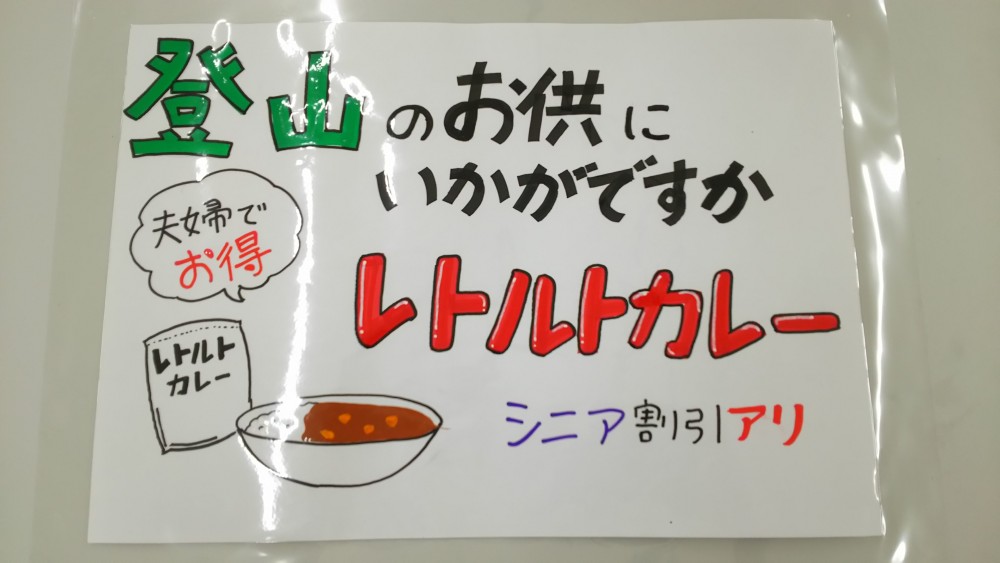 登山のお供に
いかがですか
夫婦で
お得
レトルトカレー
レトルト
カレー
シニア割引アリ